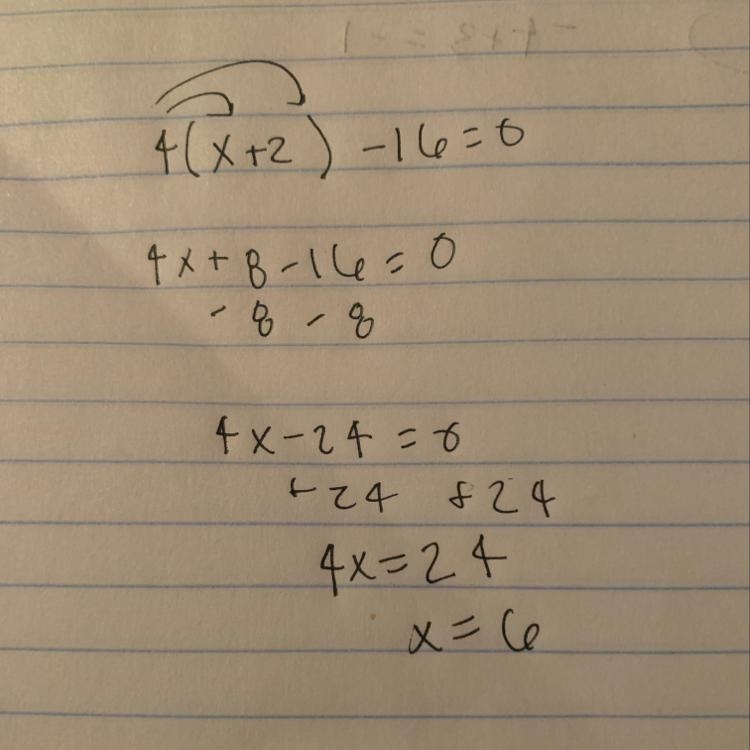 4(x+2) -16=0
4x+8-16=0
-8 -8
4x-24=0
+24 +24
4x=24
x=6